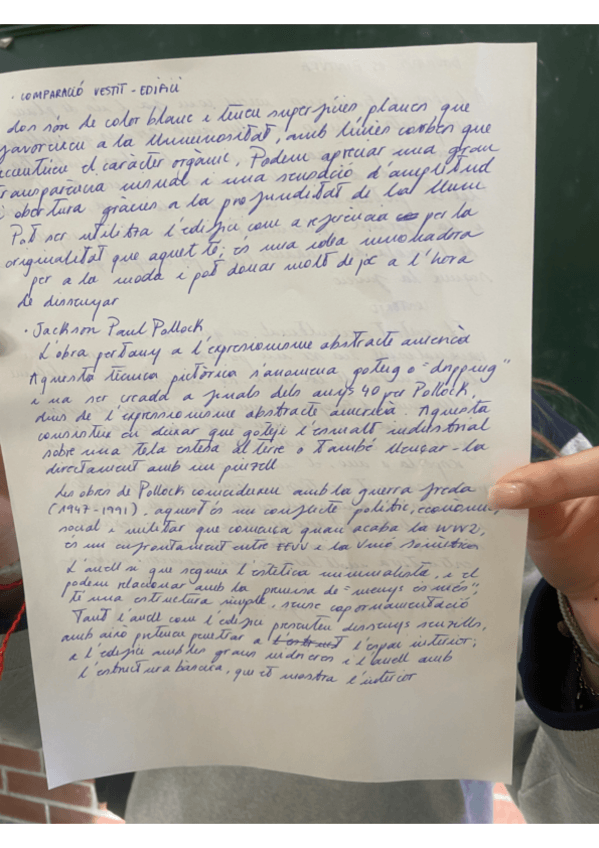 · COMPARACIÓ VESTIT - EDIFICI
dos són de color blanc i tenen superfícies planes que
favoreixen a la lluminositat, amb línies corbes que
accentuen el caràcter orgànic. Podem apreciar una gran
transparència visual i una sensació d'amplitud
i obertura gràcies a la profunditat de la llum
Pot ser utilitza l'edifici com a referència per la
originalitat que aquest té, és una idea innovadora
per a la moda i pot donar molt de joc a l'hora
de dissenyar
· Jackson Paul Pollock
L'obra pertany a l'expressionisme abstracte americà
Aquesta tècnica pictòrica s'anomena goteig o "dripping"
i va ser creada a finals dels anys 40 per Pollock,
dins de l'expressionisme abstracte americà. Aquesta
consisteix en deixar que goteji l'esmalt industrial
sobre una tela estesa al terre o també llençar-la
directament amb un pinzell
Les obres de Pollock coincideixen amb la guerra freda
(1947-1991), aquest és un conflicte polític, econòmic,
social i militar que comença quan acaba la WW2,
és un enfrontament entre EEUU i la Unió Soviètica
L'anell sí que segueix l'estètica minimalista, i el
podem relacionar amb la premisa de "menys és més"
Té una estructura simple, sense cap ornamentació
Tant l'anell com l'edifici presenten dissenys senzills,
amb això puteixa penetrar a l'espai interior;
a l'edifici amb les grans vidrieres i l'anell amb
l'estructura bàsica, que et mostra l'interior